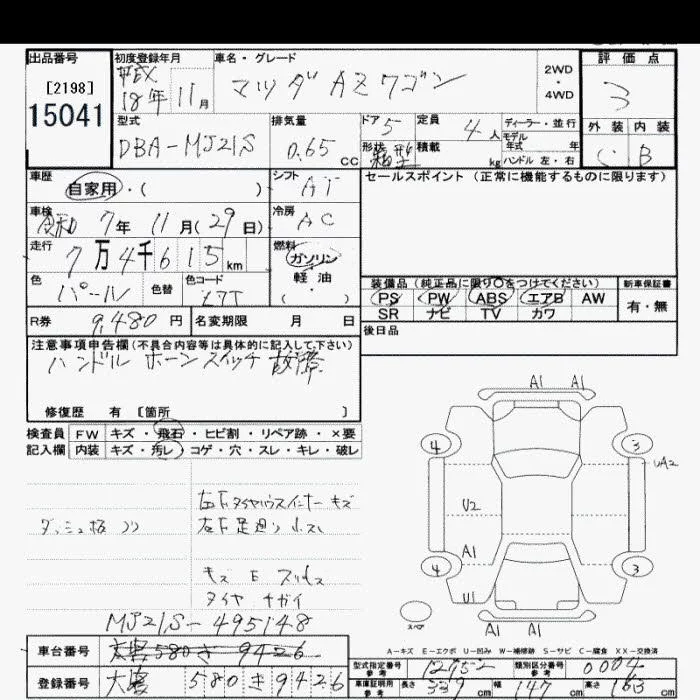 出品番号
[2198]
15041
初度登録年月
平成
18年 11月
車名・グレード
マツダ AZワゴン
2WD
・
4WD
評価点
3
外装 内装
C B
型式
DBA-MJ21S
排気量
0.65 CC
ドア 5
形状 箱型
定員 4人
積載 kg
ディーラー・並行
モデル
年式 年
ハンドル 左・右
車歴
自家用・( )
シフト AT
セールスポイント(正常に機能するものに限ります)
車検
令和 7年 11月(29日)
冷房 AC
走行
7万4千615km
燃料
ガソリン
軽油
( ・ )
色
パール
色替
色コード
Z7T
装備品(純正品に限り○をつけてください)
PS PW ABS エアB AW
SR ナビ TV カワ
新車保証書
有・無
R券 9,480円
名変期限 月 日
後日品
注意事項申告欄(不具合内容等は具体的に記入して下さい)
ハンドル ホーンスイッチ 故障
修復歴 有 [箇所 ]
検査員 FW キズ・飛石・ヒビ割・リペア跡・×要
記入欄 内装 キズ・汚レ・コゲ・穴・スレ・キレ・破レ
A1 A1
4 3
UA2
U2
A1
4 3
U1
スペア
A1 A1
キズ E
タイヤ チガイ
MJ21S-495148
A-キズ E-エクボ U-凹み W-補修跡 S-サビ C-腐食 XX-交換済
車台番号
580 き 9426
登録番号
580 き 9426
型式指定番号
参考
12952
類別区分番号
参考
0004
車庫証明用
参考
長さ 339cm 幅 147cm 高さ 163cm